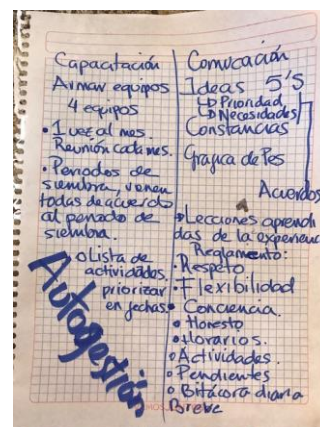 Capacitación
Armar equipos
4 equipos
• 1 vez al mes.
Reunión cada mes.
• Periodos de
siembra, vienen
todas de acuerdo
al periodo de
siembra.
o Lista de
actividades,
priorizar
en fechas.
Autogestión
Comucación
Ideas 5'S
↳ Prioridad
↳ Necesidades
Constancias
Grafica de Pes
Acuerdos
Lecciones aprendi
das de la experienc
Reglamento:
• Respeto
• Flexibilidad
• Conciencia.
• Honesto
• Horarios.
• Actividades.
• Pendientes
• Bitácora diaria
Breve